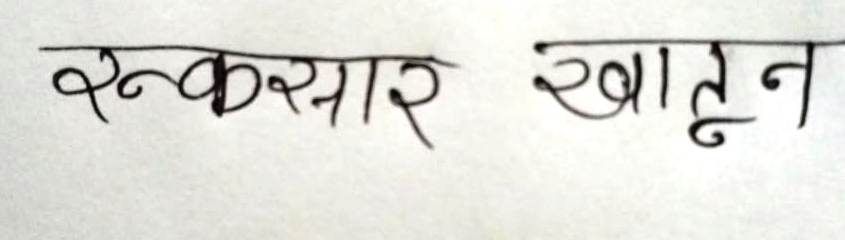 रुकसार खातून